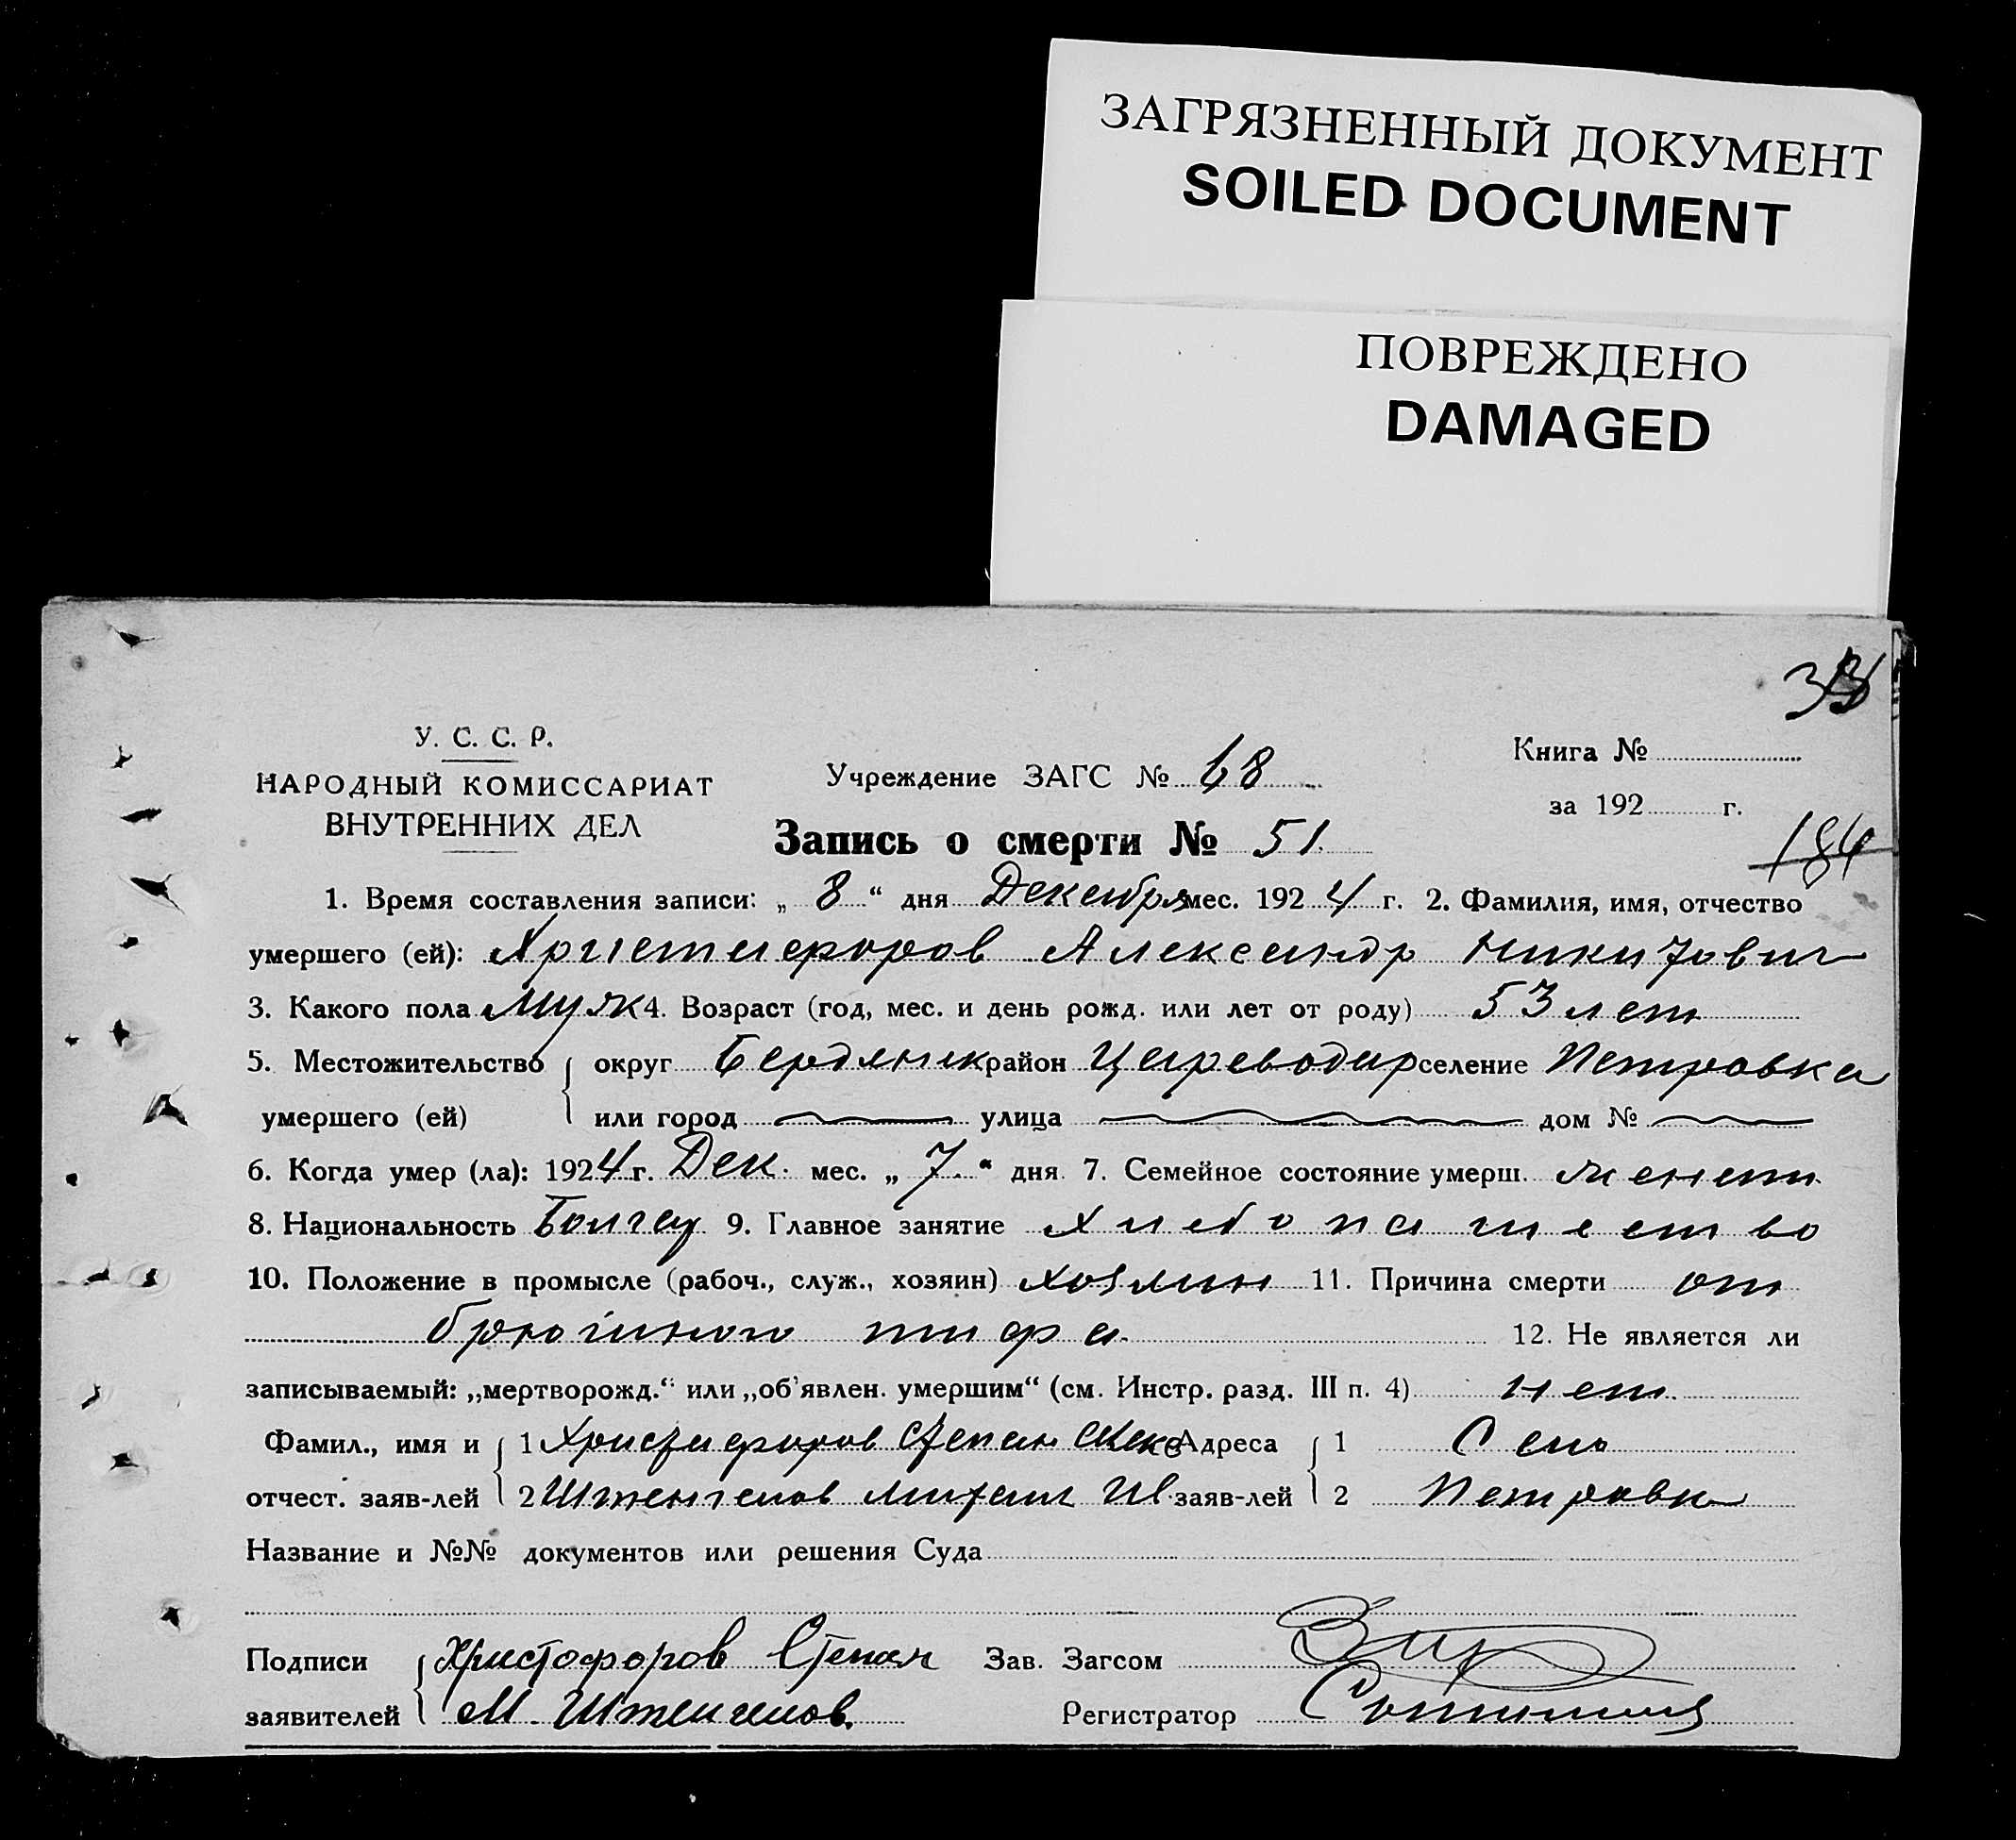 ЗАГРЯЗНЕННЫЙ ДОКУМЕНТ
SOILED DOCUMENT
ПОВРЕЖДЕНО
DAMAGED
У. С. С. Р.
НАРОДНЫЙ КОМИССАРИАТ
ВНУТРЕННИХ ДЕЛ
Учреждение ЗАГС № 68
Книга №
за 192 г.
Запись о смерти № 51.
184
1. Время составления записи: „ 8 “ дня Декабря мес. 1924 г. 2. Фамилия, имя, отчество
умершего (ей): Христифоров Александр Никитович
3. Какого пола Муж 4. Возраст (год, мес. и день рожд. или лет от роду) 53 лет
5. Местожительство { округ Бердянск район Цареводар селение Петровка
умершего (ей) или город улица дом №
6. Когда умер (ла): 1924 г. Дек. мес. „ 7. “ дня 7. Семейное состояние умерш. женат
8. Национальность Болгар 9. Главное занятие Хлебопашество
10. Положение в промысле (рабоч., служ., хозяин) хозяин 11. Причина смерти от
брюшного тифа. 12. Не является ли
записываемый: „мертворожд.“ или „об'явлен. умершим“ (см. Инстр. разд. III п. 4) нет.
Фамил., имя и { 1 Христифоров Степан Алекс Адреса { 1 Село
отчест. заяв-лей 2 Михаил Ив. заяв-лей 2 Петровка
Название и №№ документов или решения Суда
Подписи { Христофоров Степан Зав. Загсом
заявителей М. Регистратор